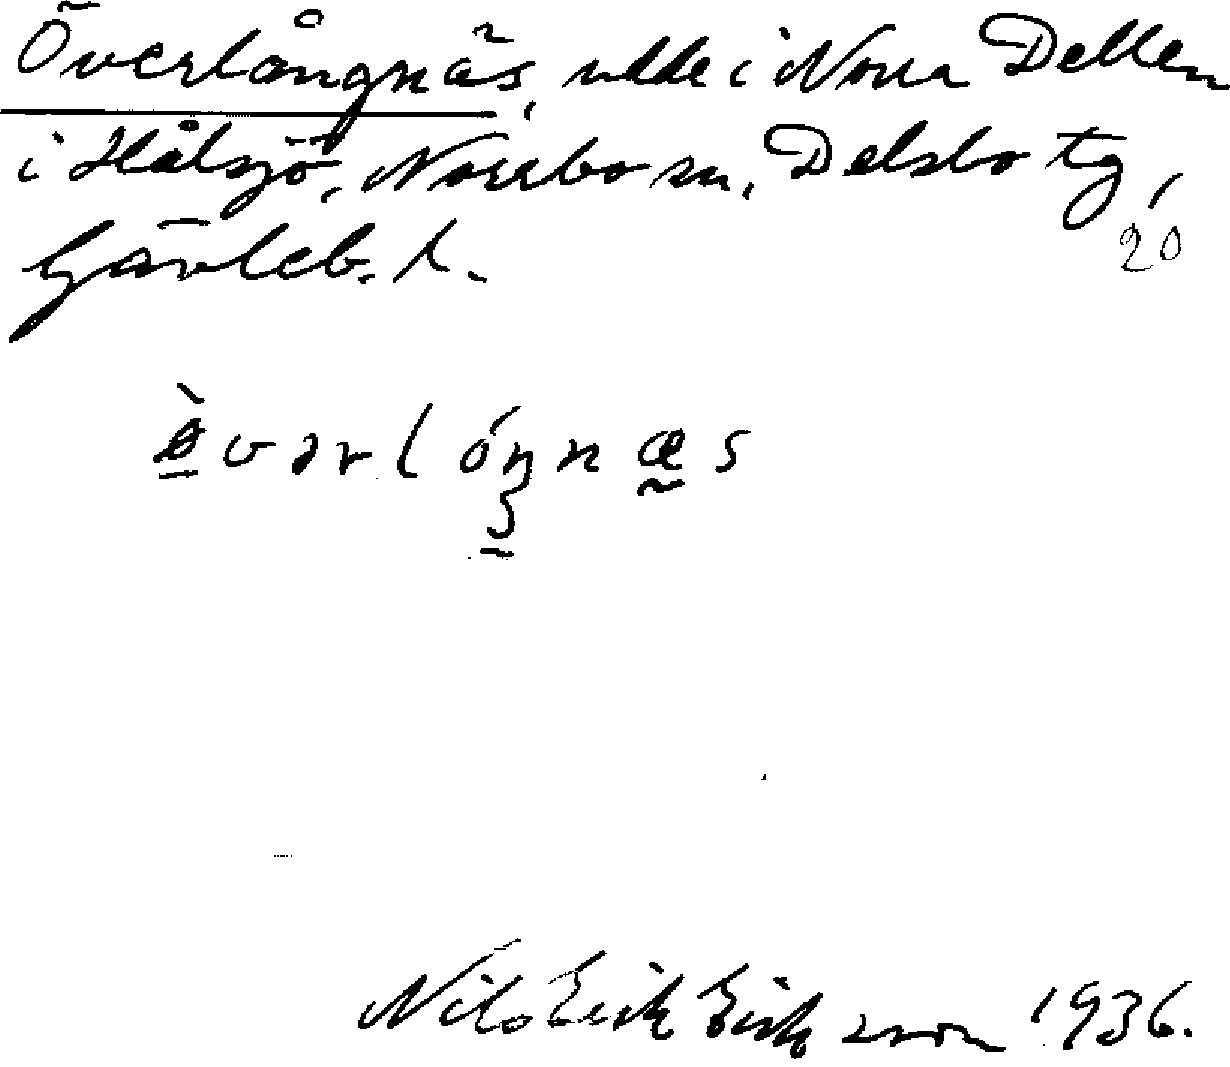 Överlångnäs, udde i Norra Dellen
i Hålsjö, Norrbo sn, Delsbo tg,
20
Gävleb. l.
ø̀vərlóŋnæs
Nils Erik Eriksson 1936.